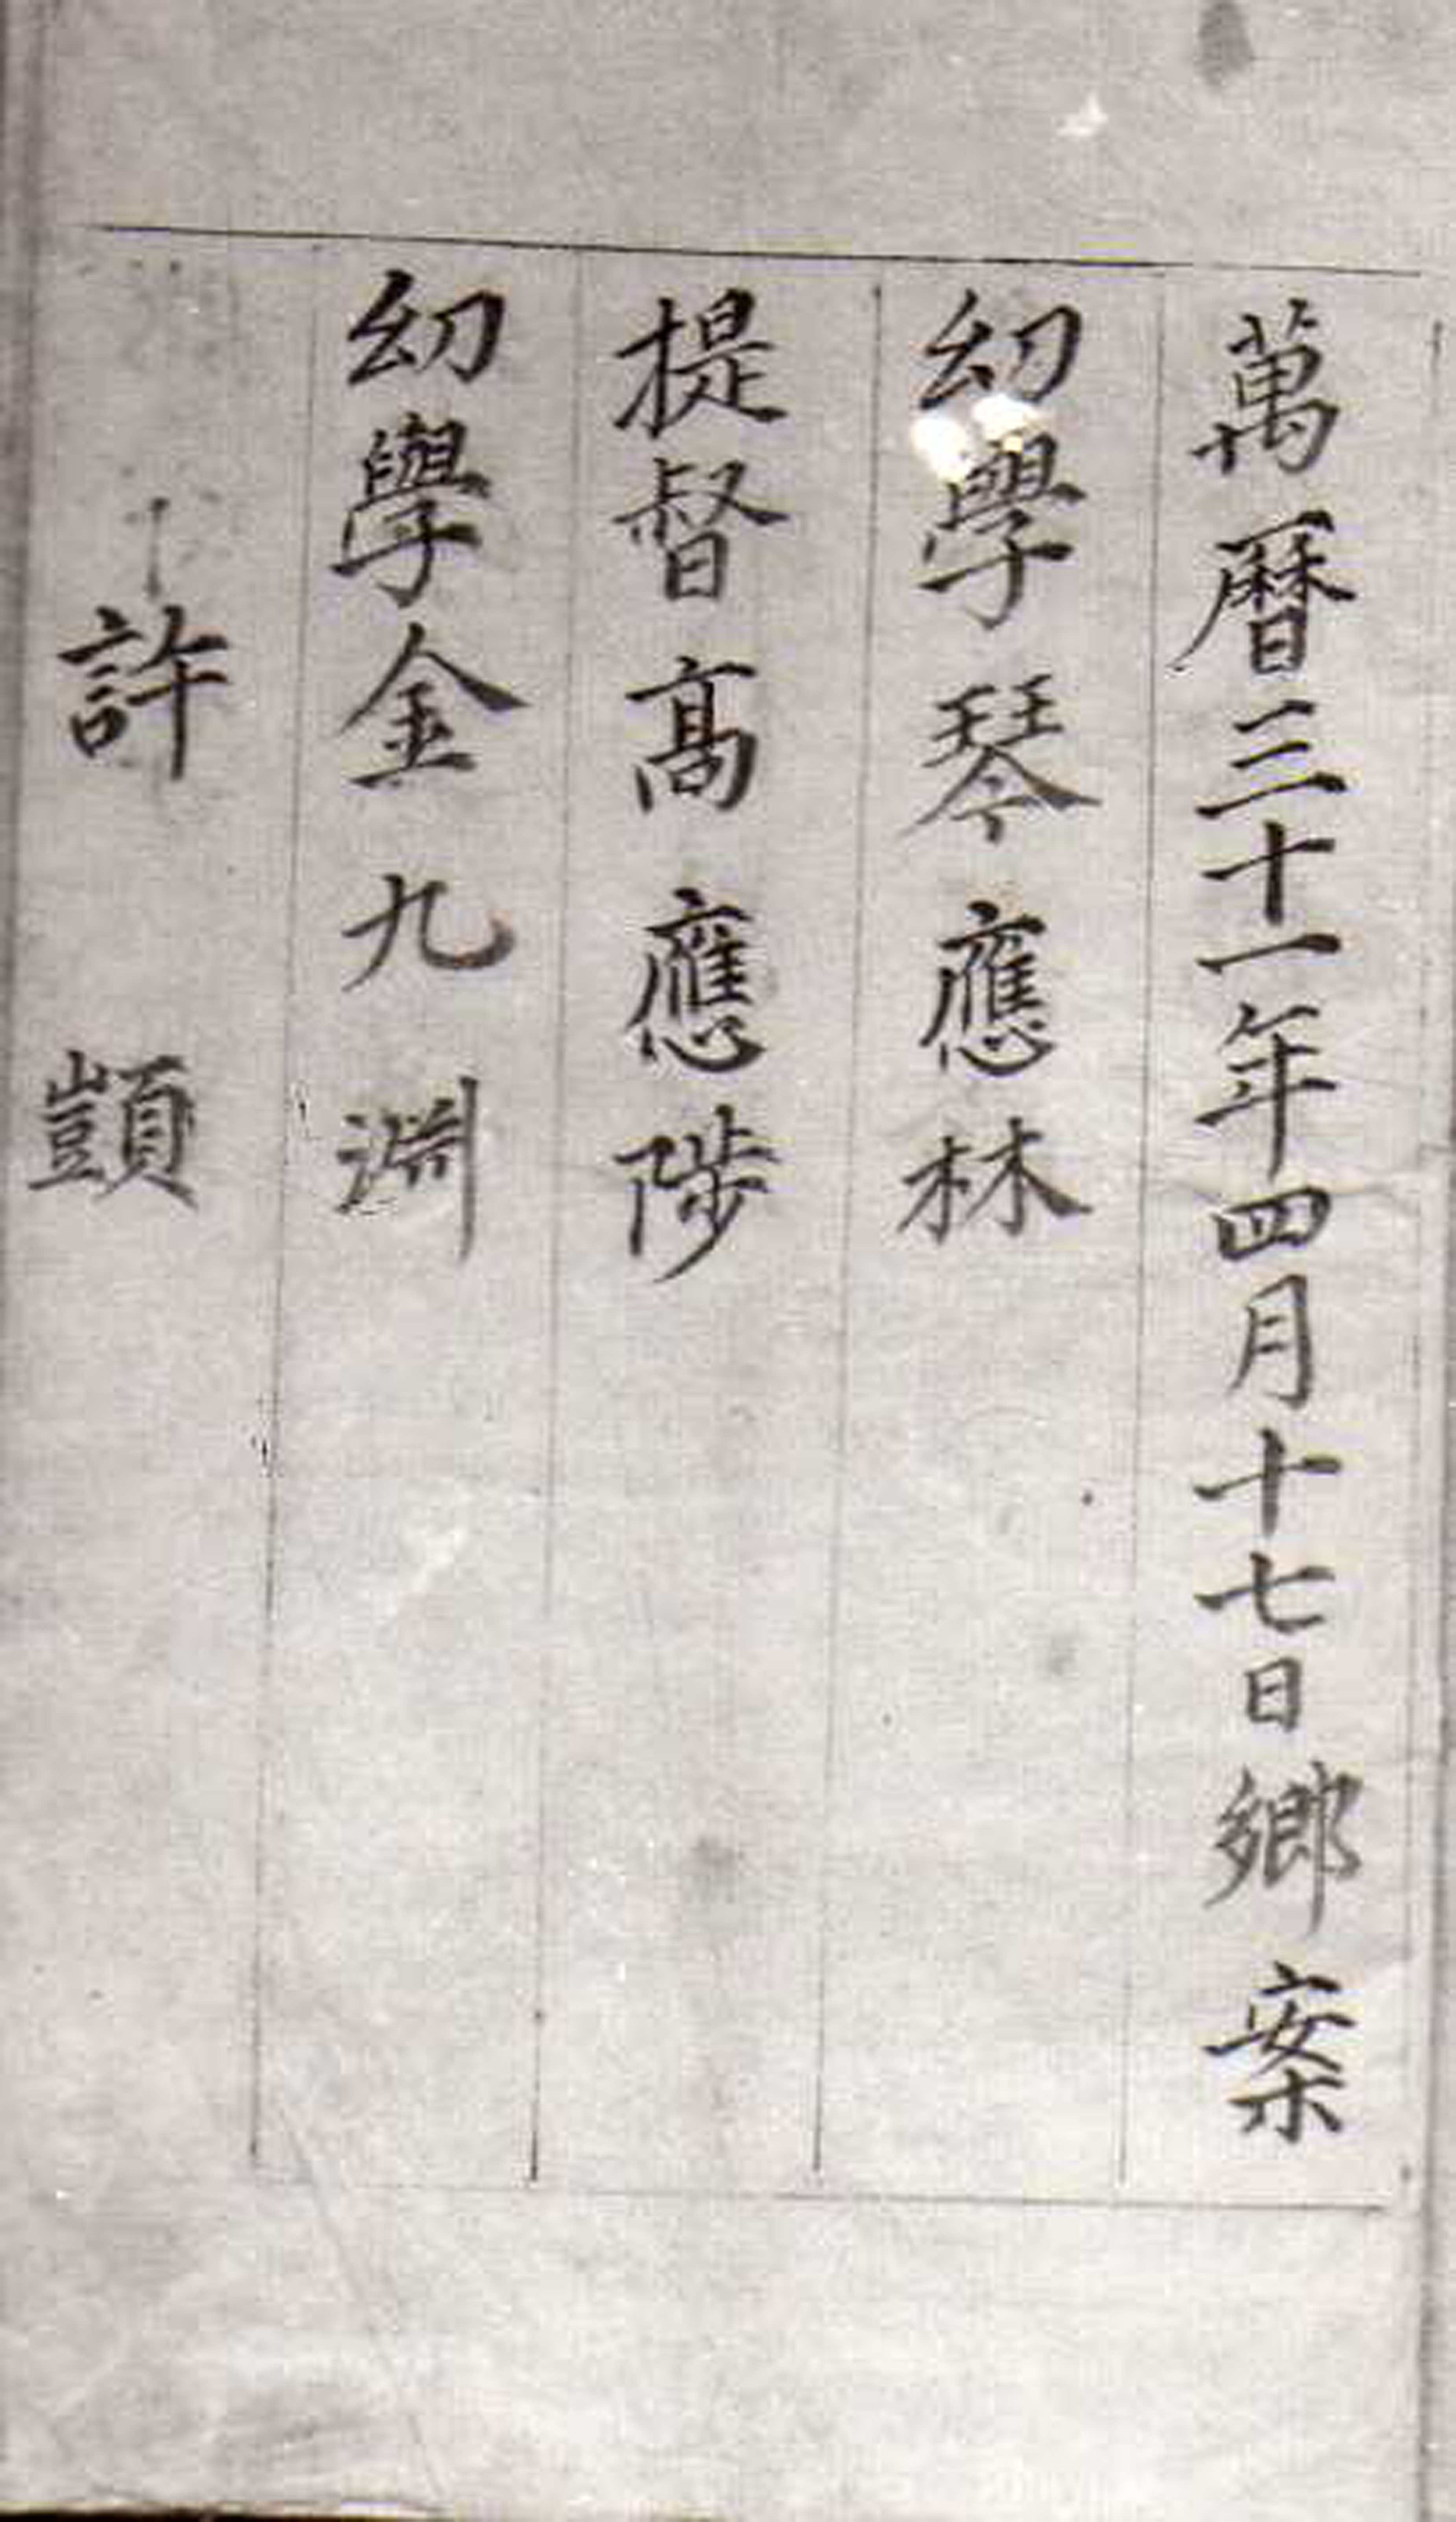 萬曆三十一年四月十七日鄕案
幼學琴應林
提督高應陟
幼學金九淵
許顗